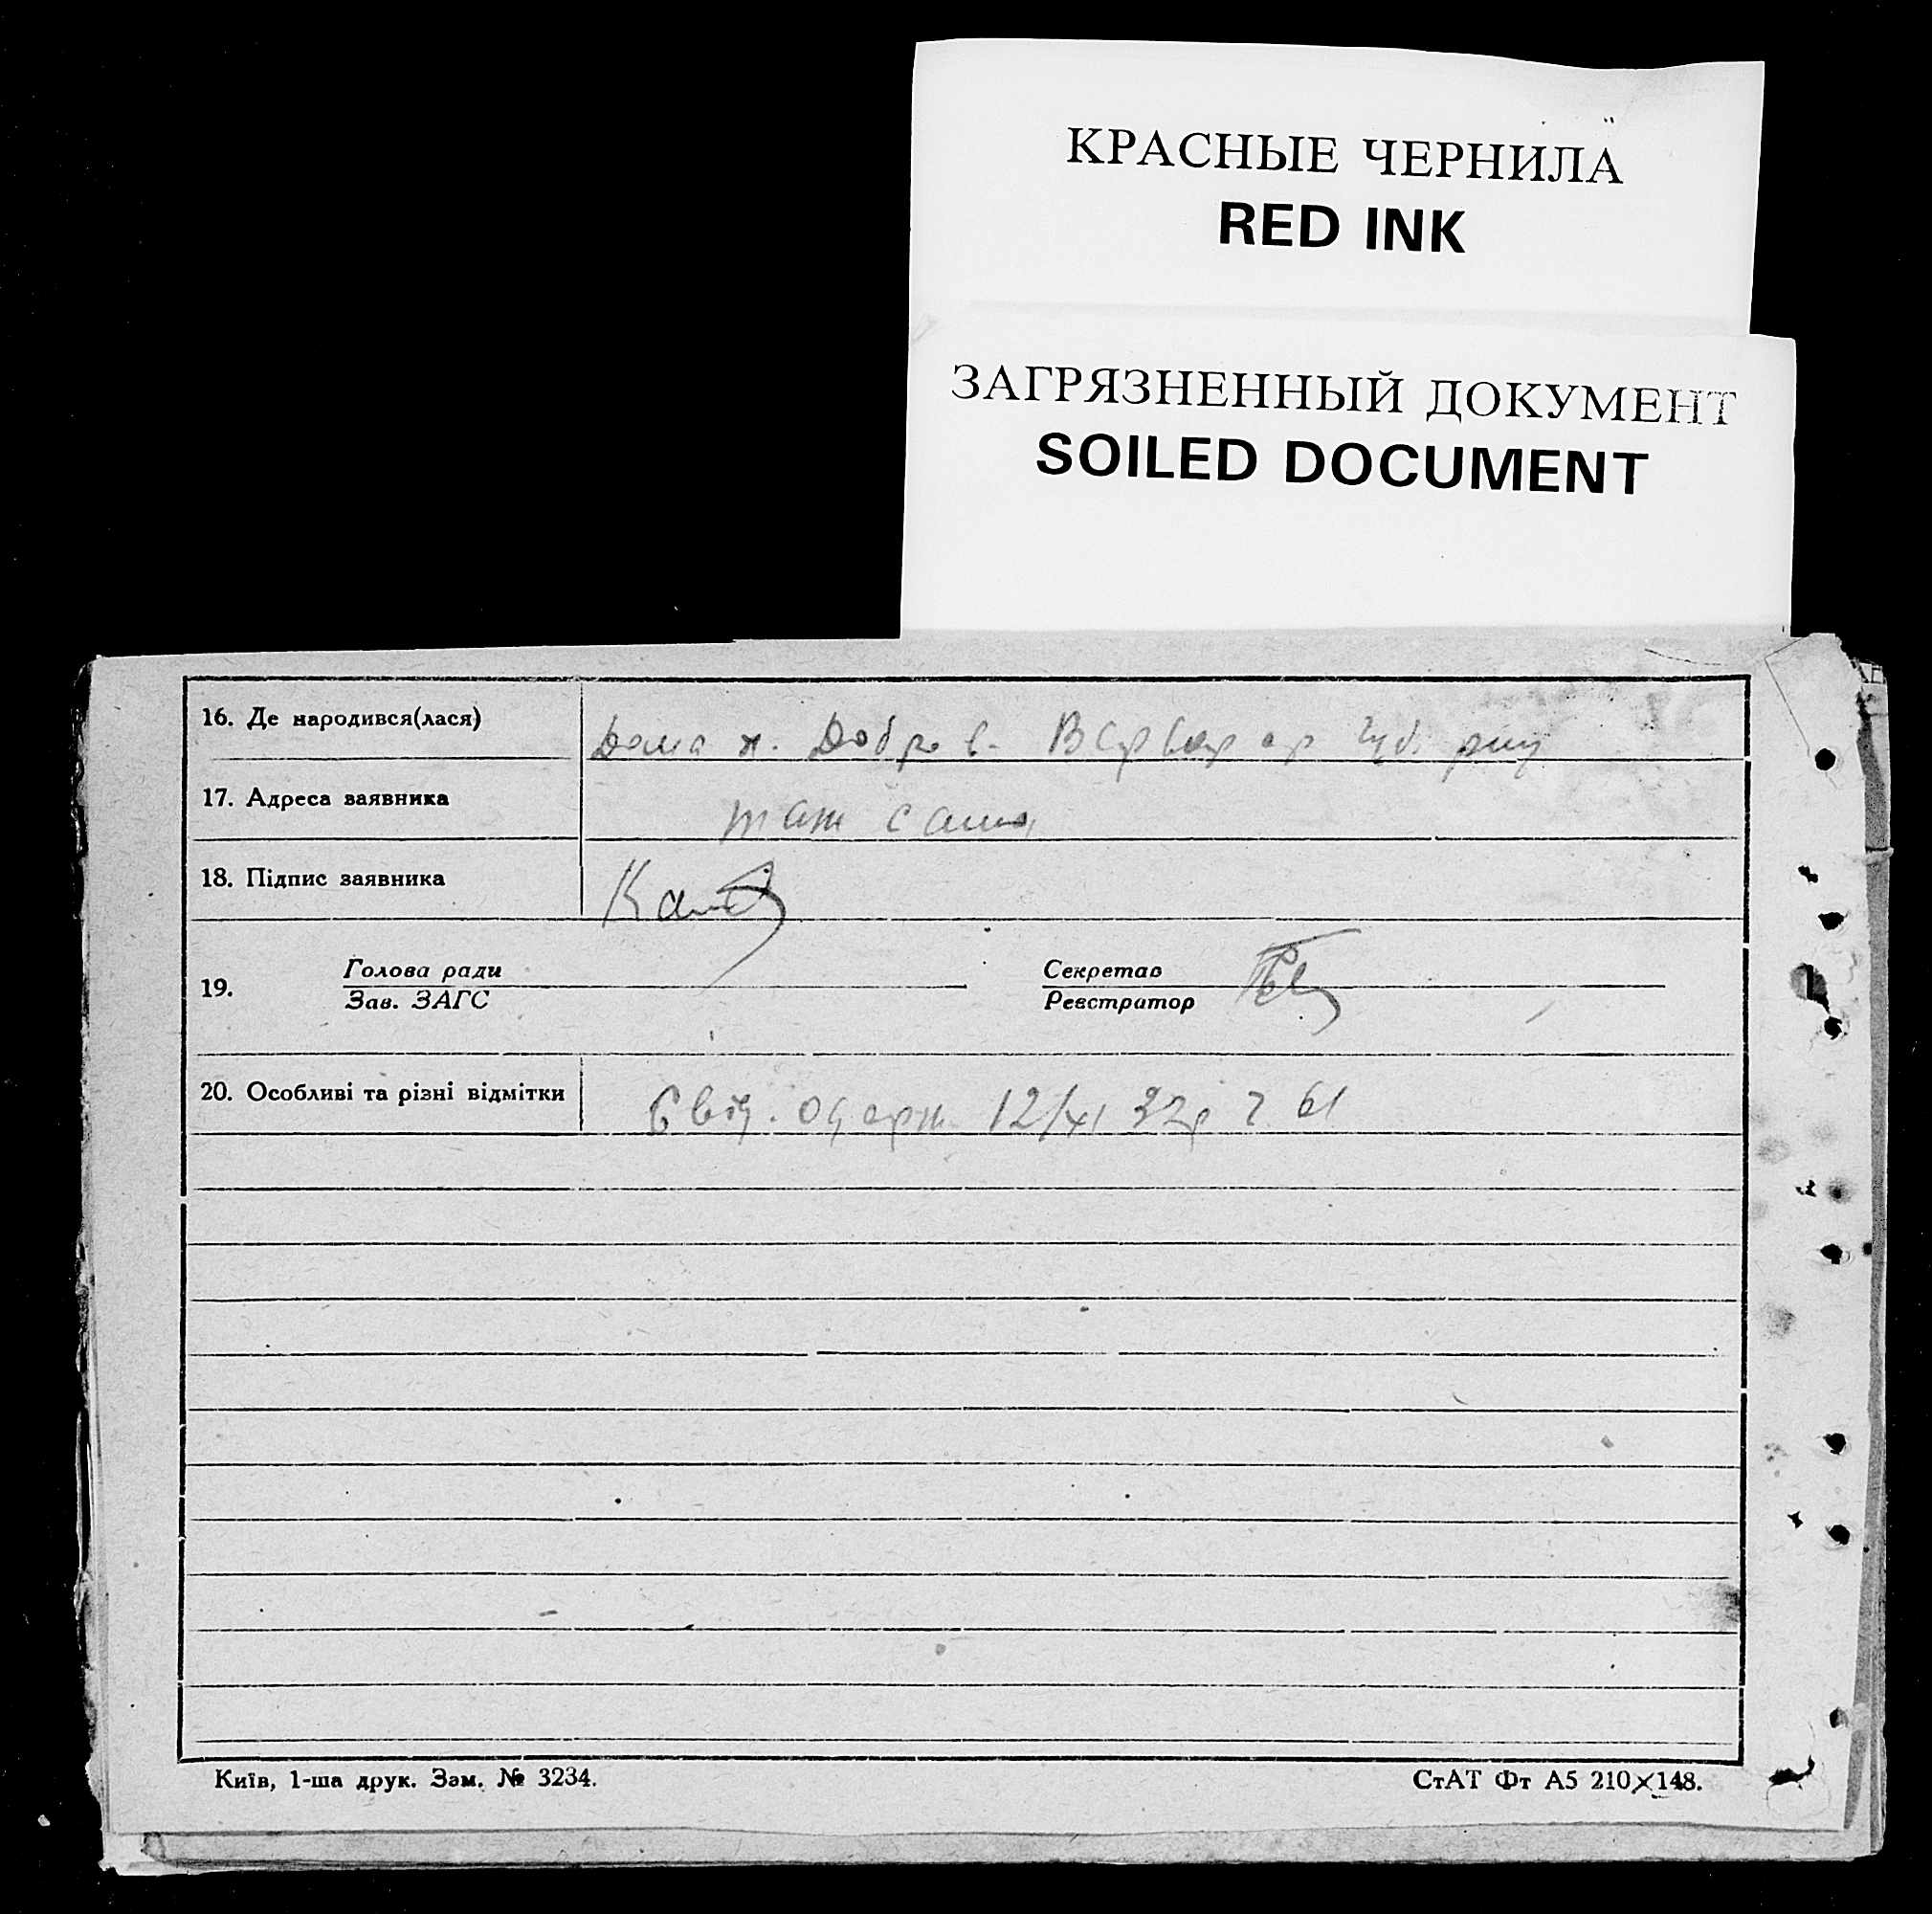 КРАСНЫЕ ЧЕРНИЛА
RED INK
ЗАГРЯЗНЕННЫЙ ДОКУМЕНТ
SOILED DOCUMENT
16. Де народився(лася)
17. Адреса заявника
там сами
18. Підпис заявника
19. Голова ради Секретар
Зав. ЗАГС Реєстратор
20. Особливі та різні відмітки Свід. одерж. 12/XI 32р 61
Київ, 1-ша друк. Зам. № 3234. СтАТ Фт А5 210×148.